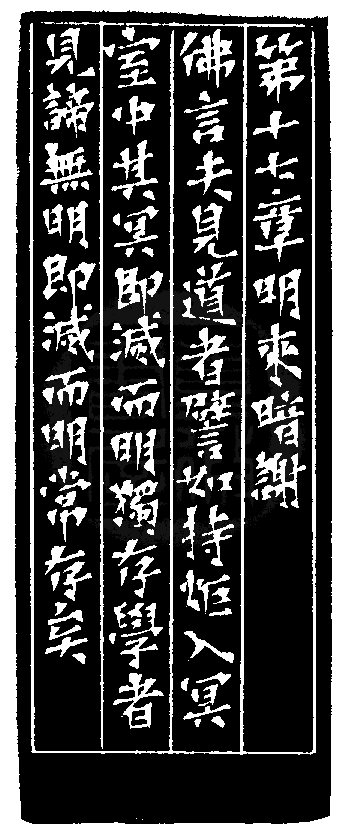 第十七章明來暗謝
佛言夫見道者譬如持炬入冥
室中其冥即滅而明獨存學者
見諦無明即滅而明常存矣